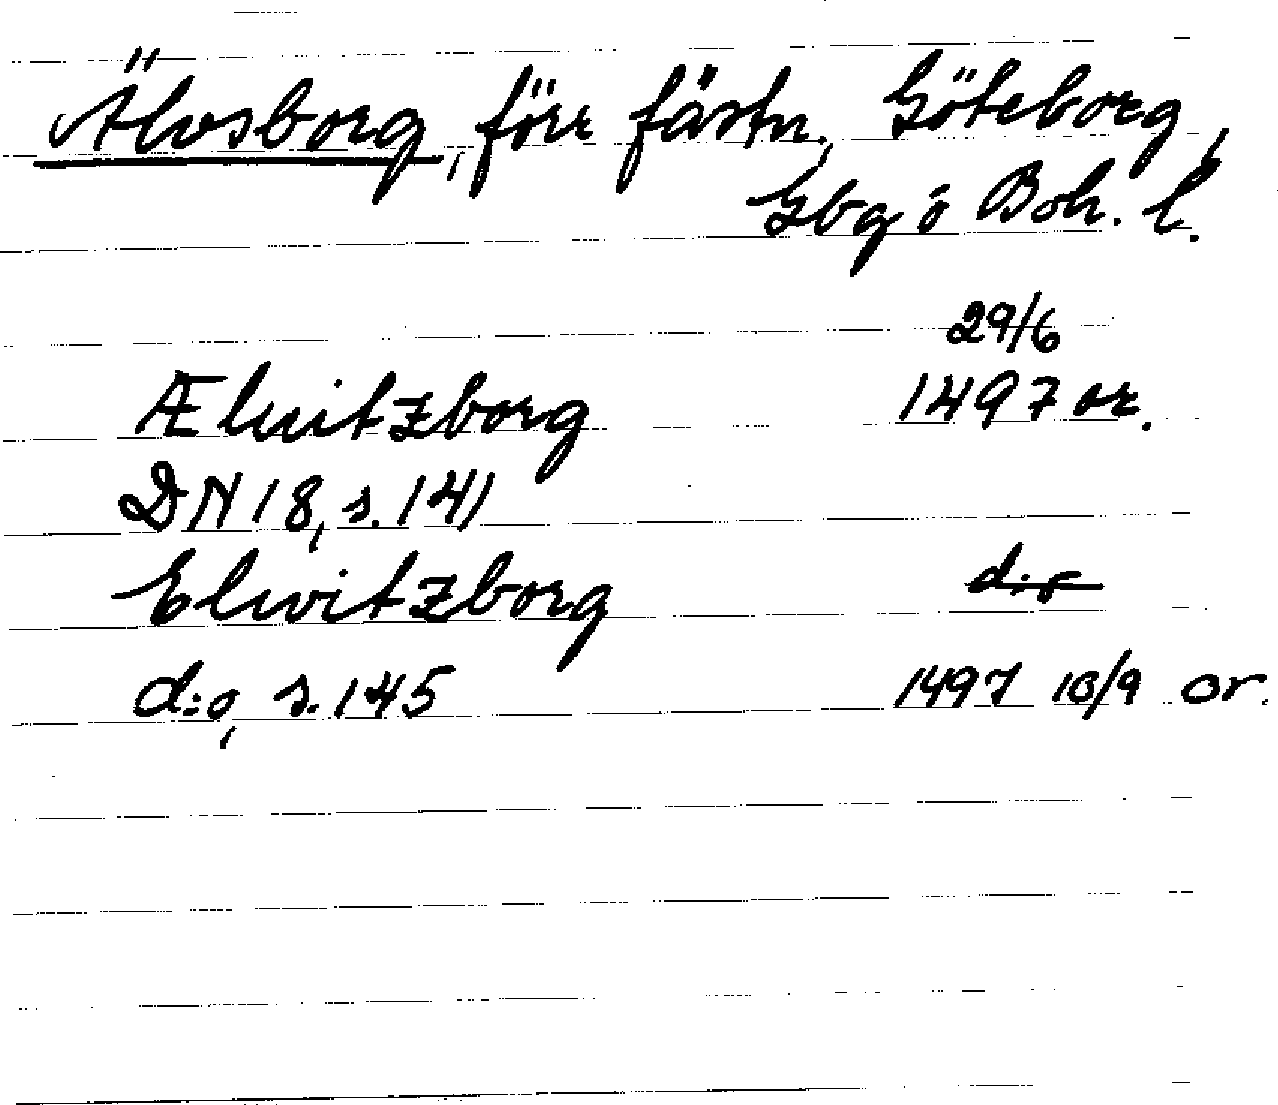 Älvsborg, förr fästn., Göteborg,
Gbg o Boh. l.
29/6
Æluitzborg 1497 or.
DN 18, s. 141
Elwitzborg d:o
d:o, s. 145 1497 10/9 or.